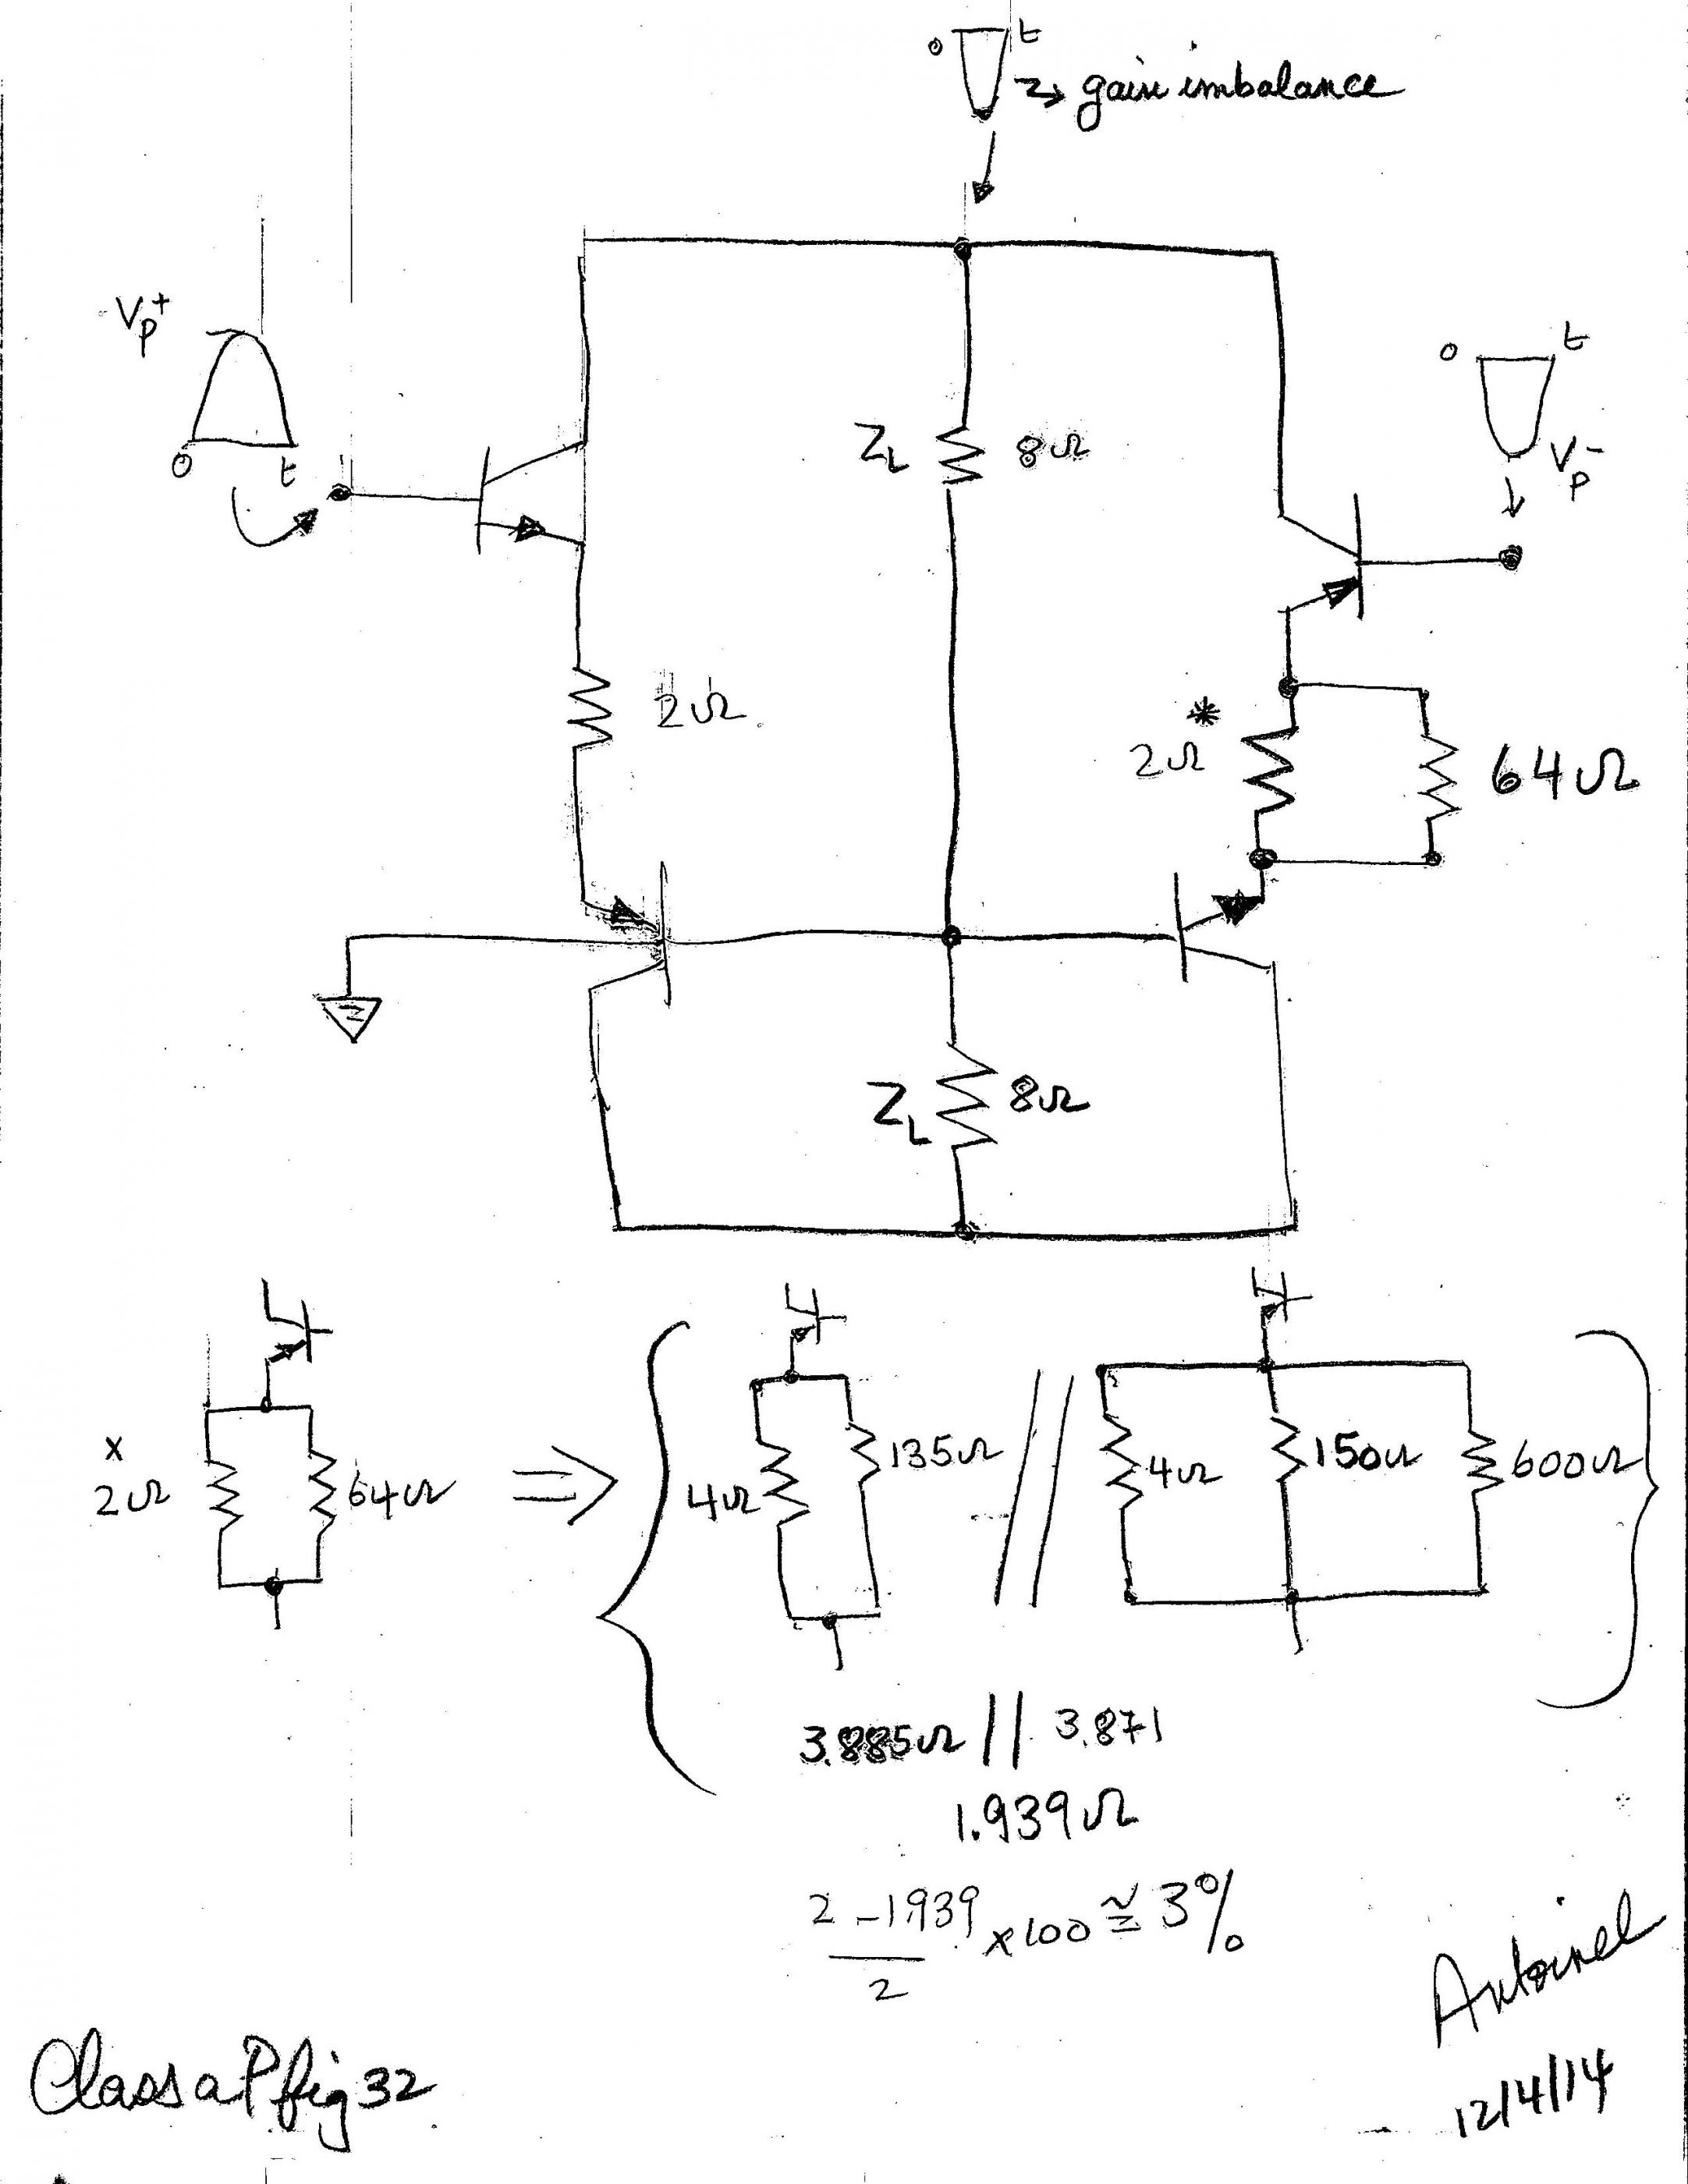 0 t
→ gain imbalance
Vp+
0 t
0 t
Vp-
ZL 8Ω
2Ω
*
2Ω 64Ω
ZL 8Ω
x
2Ω 64Ω ⇒ { 4Ω 135Ω // 4Ω 150Ω 600Ω }
3.885Ω || 3.871
1.939Ω
2 - 1.939 x100 ≅ 3%
2
Antoinel
Class aP fig 32
12/4/14